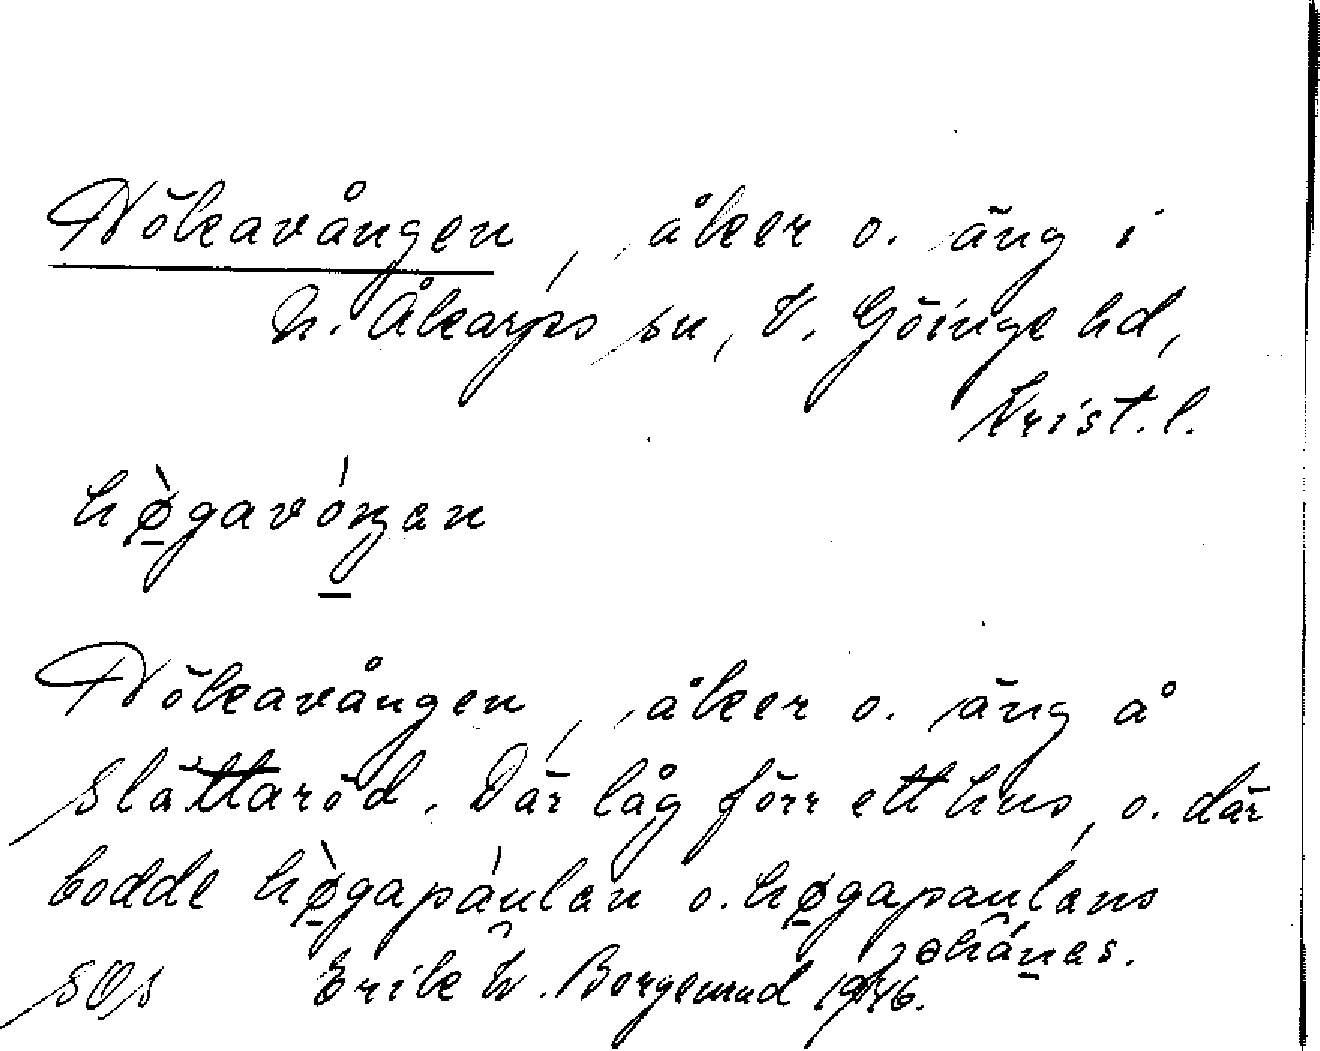 Hökavången, åker o. äng i
N. Åkarps sn, V. Göinge hd,
Krist. l.
hø̀gavóŋan
Hökavången, åker o. äng å
Slättaröd. Där låg förr ett hus, o. där
bodde hø̀gapáulan o. høgapaulans
johánas.
SOs Erik W. 1946.